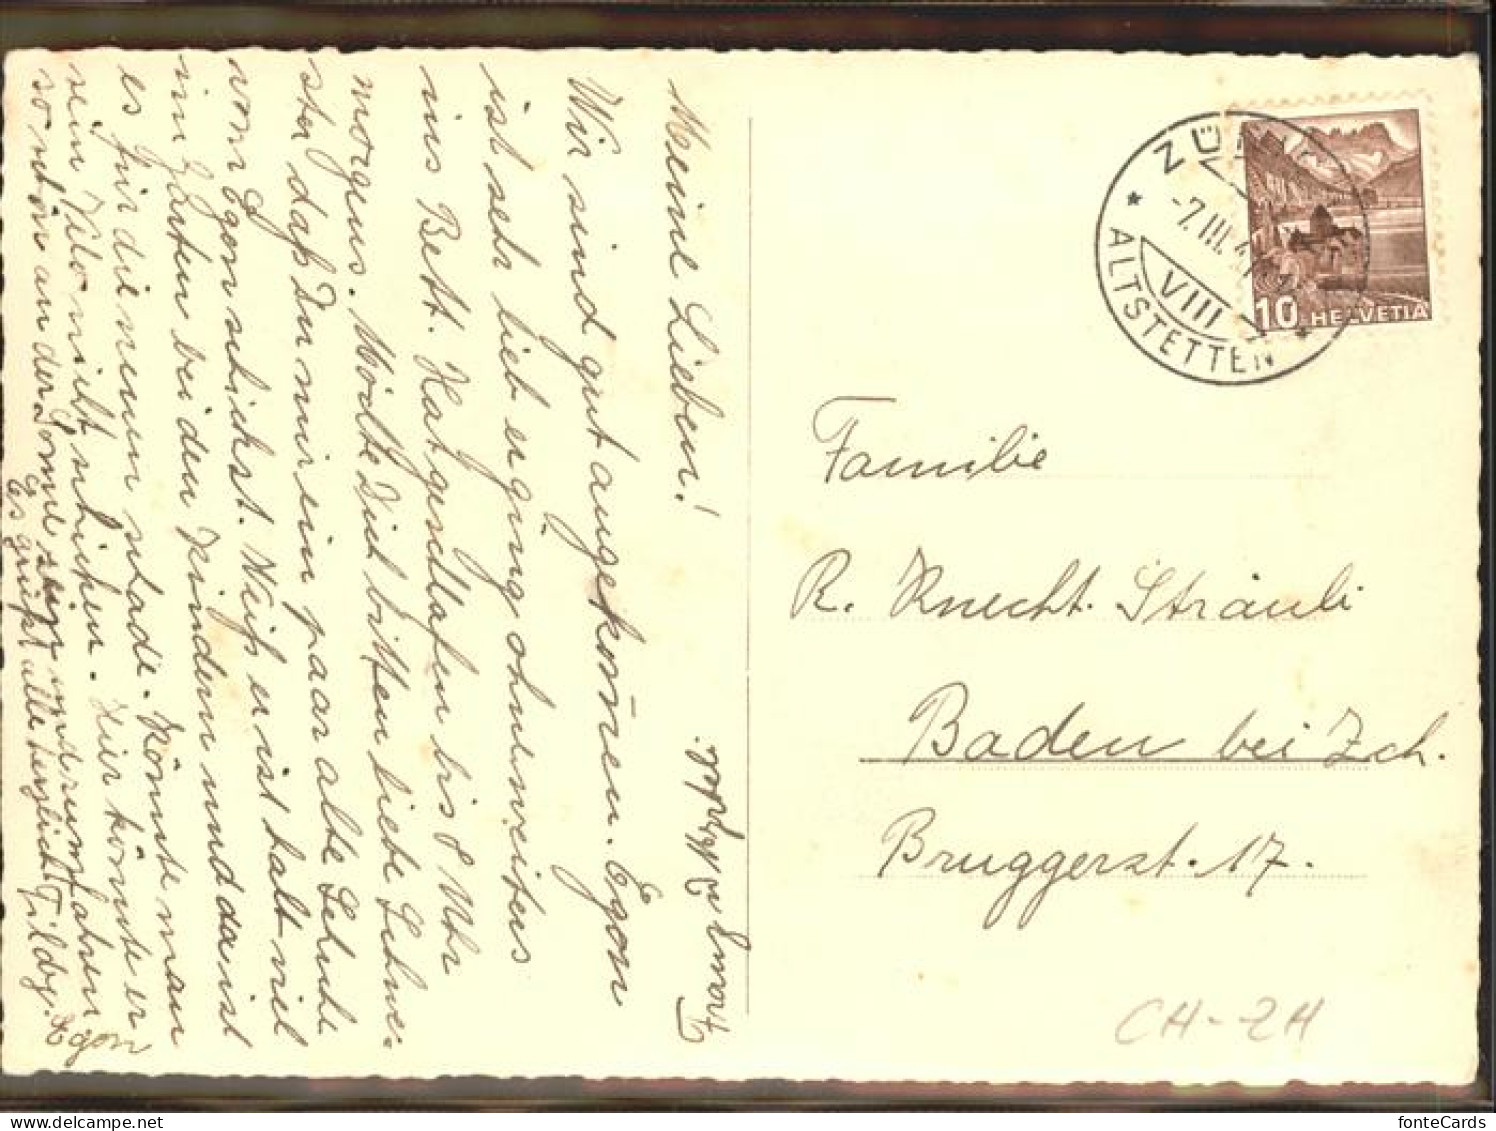 Meine Lieben!
Wir sind gut angekom̄en. Egon
ist sehr lieb er ging ohne weiteres
ins Bett. Hat geschlafen bis 8 Uhr
morgens. Möchte Dich bitten liebe Schwe-
ster daß Du mir ein paar alte Schuhe
vom Egon schickst. Weiß er ist halt viel
im Garten bei den Kindern und da ist
es für die neuen schade. Könnte man
sein Velo nicht schicken. Hier könnte er
so schön an der Sonne sein und rumfahren.
Es grüßt alle herzlich Tildy. Egon
ZÜRICH
-7.III.
VIII
ALTSTETTEN
10 HELVETIA
Familie
R. Knecht. Sträuli
Baden bei Zch.
Bruggerst. 17.
CH-ZH
fonteCards